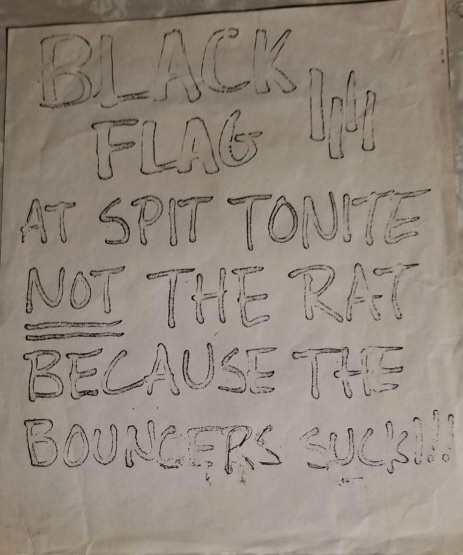 BLACK
FLAG
AT SPIT TONITE
NOT THE RAT
BECAUSE THE
BOUNCERS SUCK!!!